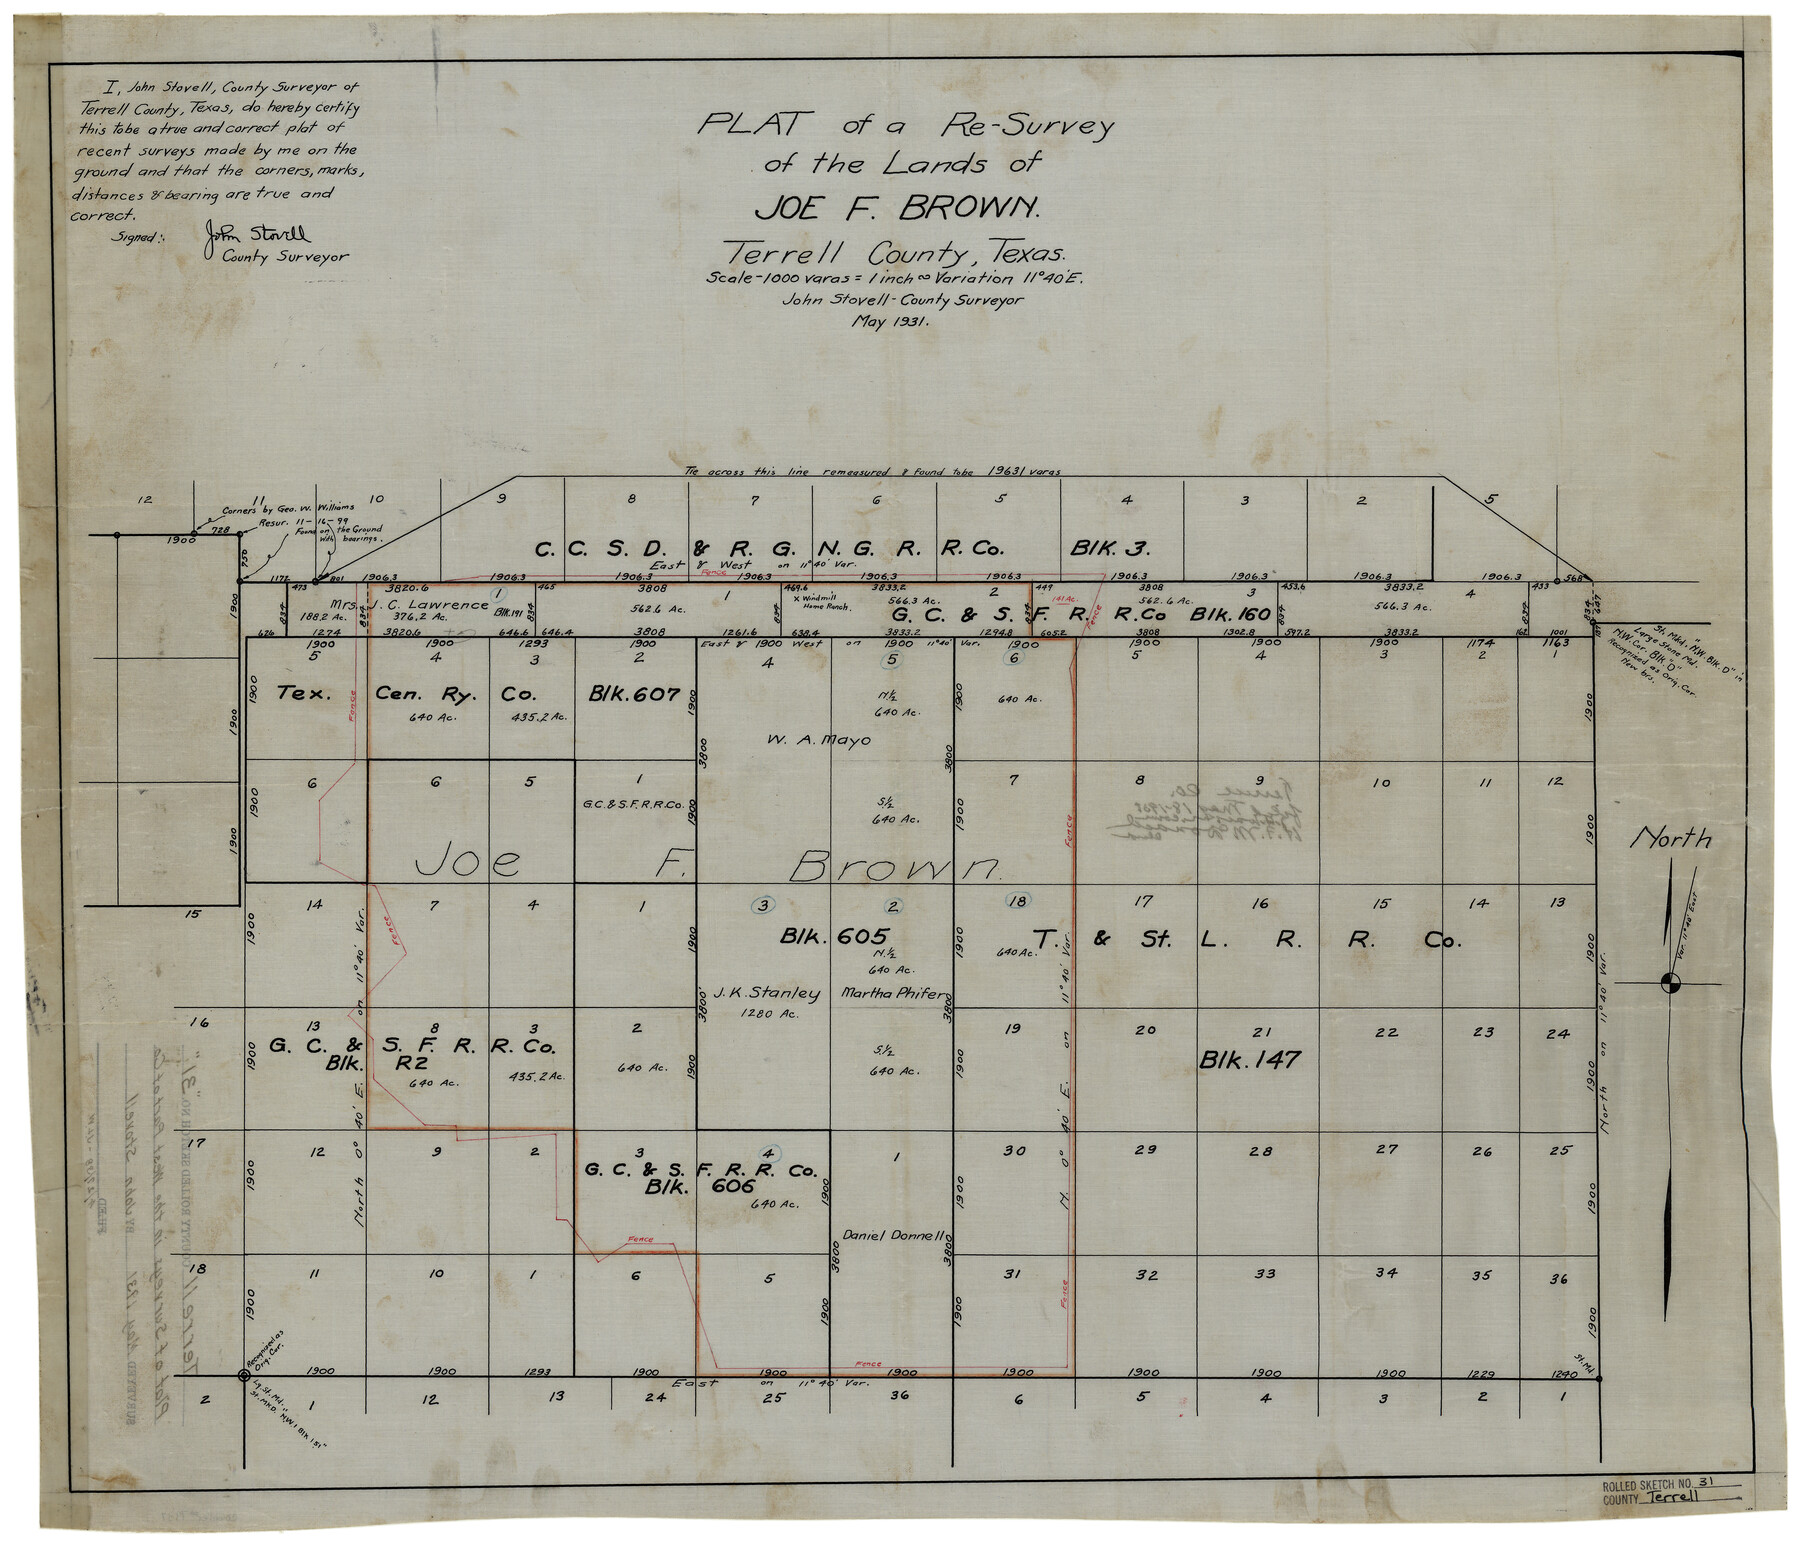 I, John Stovell, County Surveyor of
Terrell County, Texas, do hereby certify
this to be a true and correct plat of
recent surveys made by me on the
ground and that the corners, marks,
distances & bearing are true and
correct.
Signed:. John Stovell
County Surveyor
PLAT of a Re-Survey
of the Lands of
JOE F. BROWN.
Terrell County, Texas.
Scale-1000 varas = 1 inch ∞ Variation 11°40'E.
John Stovell-County Surveyor
May 1931.
Tie across this line remeasured & found to be 19631 varas
12 11 10 9 8 7 6 5 4 3 2 5
Corners by Geo. W. Williams
Resur. 11-16-99
Found on the Ground
with bearings.
1900 728
750
C. C. S. D. & R. G. N. G. R. R. Co. Blk. 3.
East & West on 11°40' Var.
Fence
1172 801 1906.3 1906.3 1906.3 1906.3 1906.3 1906.3 1906.3 1906.3 1906.3 1906.3 568
473 3820.6 465 3808 469.6 3833.2 449 3808 453.6 3833.2 433
1 1 2 3 4
Mrs. J. C. Lawrence Blk. 191
188.2 Ac. 376.2 Ac. 562.6 Ac.
X Windmill
Home Ranch.
566.3 Ac. 141 Ac. 562.6 Ac. 566.3 Ac.
G. C. & S. F. R. R. Co Blk. 160
834 834 834 834 834 834 834 834
626 1274 3820.6 646.6 646.4 3808 1261.6 638.4 3833.2 1294.8 605.2 3808 1302.8 597.2 3833.2 162 1001
1900 1900 1293 1900 East & 1900 West on 1900 11°40' Var. 1900 1900 1900 1900 1174 1163
St. Mkd. "N.W. Blk. D" in
Large Stone Md.
N.W. Cor. Blk "D"
Recognized as Orig. Cor.
New brs.
5 4 3 2 4 5 6 5 4 3 2 1
Tex. Cen. Ry. Co. Blk. 607
640 Ac. 435.2 Ac.
N.½
640 Ac.
640 Ac.
W. A. Mayo
1900 1900 1900 3800 3800 1900 1900
Fence
6 6 5 1 7 8 9 10 11 12
G.C. & S.F. R.R. Co.
S.½
640 Ac.
1900 1900 1900 1900 1900
Fence
North
Var. 11°40' East
Joe F. Brown.
15 14 7 4 1 3 2 18 17 16 15 14 13
Blk. 605
N.½
640 Ac.
640 Ac.
T. & St. L. R. R. Co.
Fence
1900 1900 1900 1900
J. K. Stanley
1280 Ac.
Martha Phifer
3800 3800
16 13 8 3 2 19 20 21 22 23 24
G. C. & S. F. R. R. Co.
Blk. R2
640 Ac. 435.2 Ac. 640 Ac.
S.½
640 Ac.
Blk. 147
1900 1900 1900 1900
North 0° 40' E. on 11°40' Var.
N. 0° 40' E. on 11°40' Var.
North on 11°40' Var.
17 12 9 2 3 4 1 30 29 28 27 26 25
G. C. & S. F. R. R. Co.
Blk. 606
640 Ac.
1900 1900 1900 1900
Daniel Donnell
3800 3800
Fence
18 11 10 1 6 5 31 32 33 34 35 36
1900 1900 1900 1900
Fence
Recognized as
Orig. Cor.
Lg. St. Md.
St. Mkd. "N.W. 1 Blk 151"
St. Md.
Fence
1900 1900 1293 1900 1900 1900 1900 1900 1900 1900 1229 1240
East on 11°40' Var.
2 1 12 13 24 25 36 6 5 4 3 2 1
ROLLED SKETCH NO. 31
COUNTY Terrell